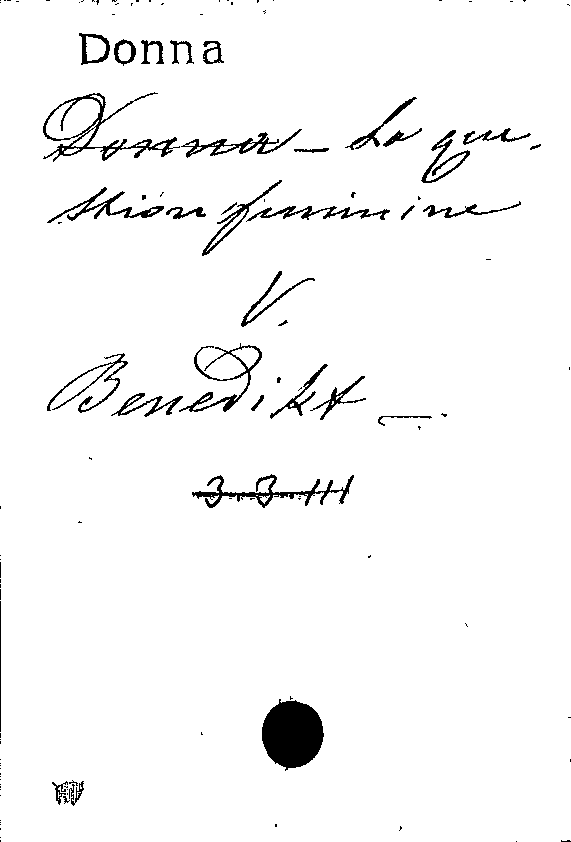 Donna
Donna - La que-
stion feminine
V.
Benedikt
3.3.III